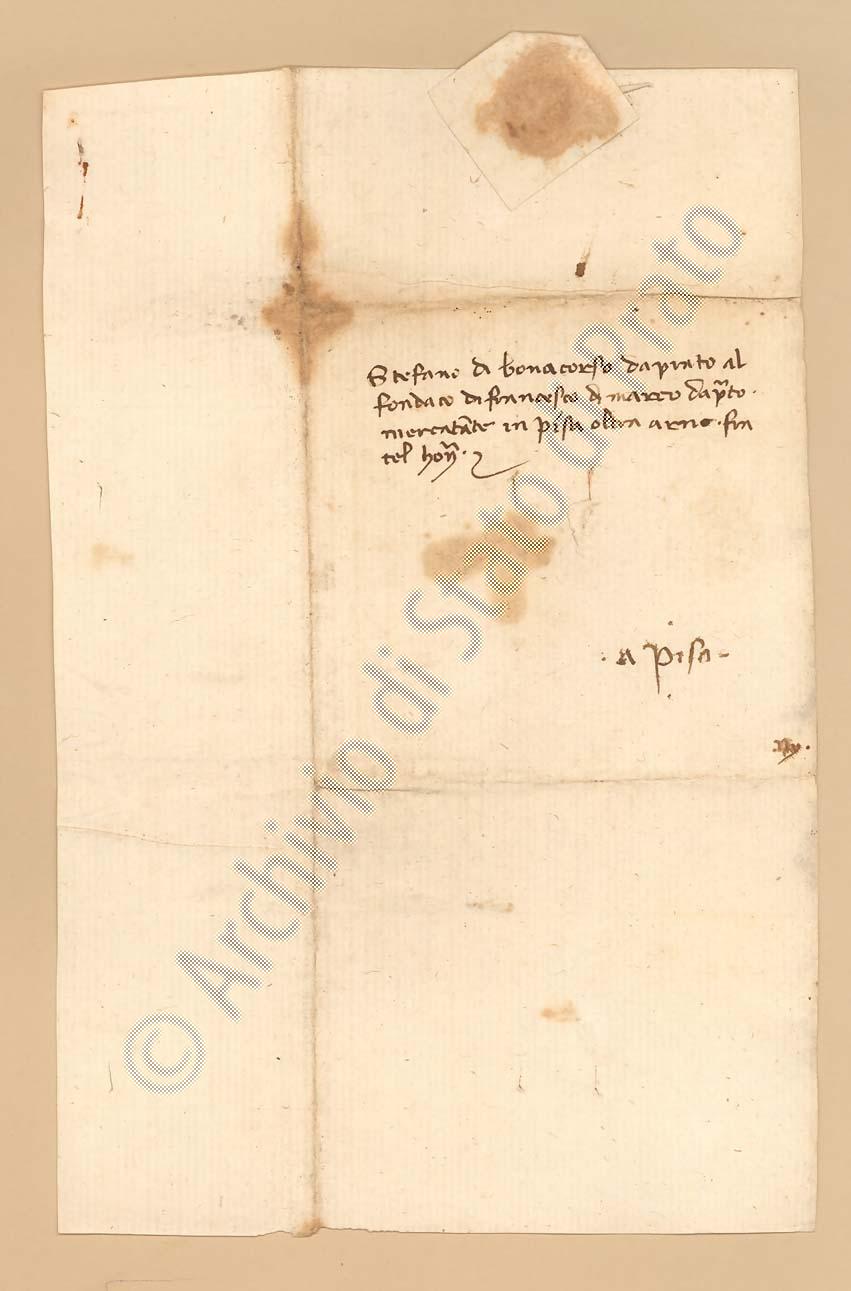 Stefano di bonacorso da prato al
fondaco di francesco di marco da p̄to ·
mercatāte in pisa oltra arno · fra
tel hon̄ ·
· a pisa -
© Archivio di Stato di Prato